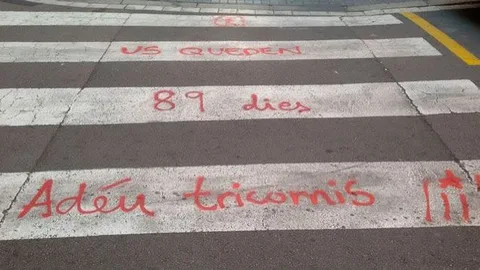 US QUEDEN
89 dies
Adéu tricornis